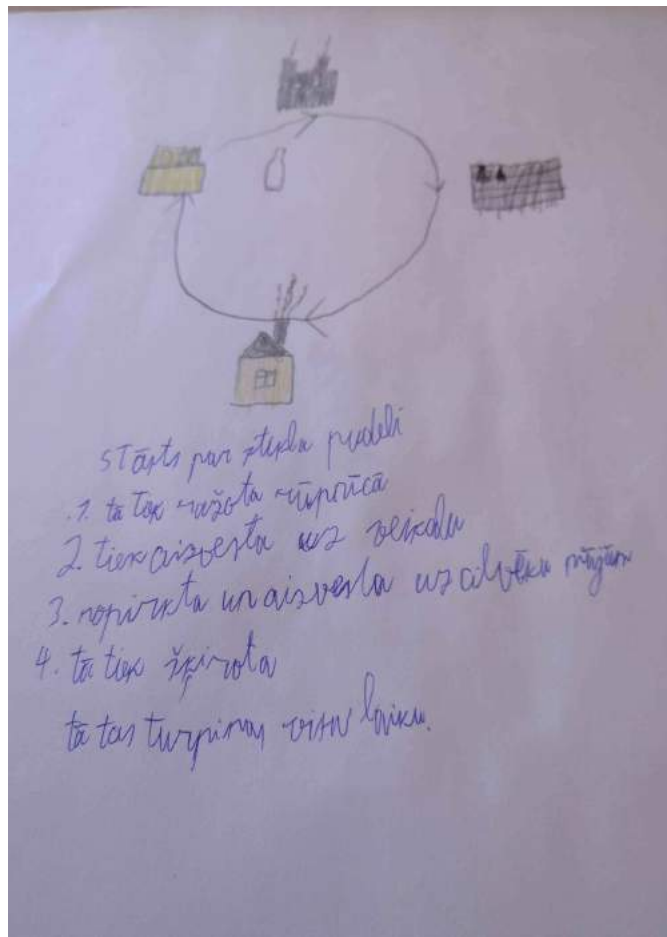 stāsts par stikla pudeli
1. tā tiek ražota rūpnīcā
2. tiek aizvesta uz veikalu
3. nopirkta un aizvesta uz cilvēku mājām
4. tā tiek šķirota
tā tas turpinas visu laiku.